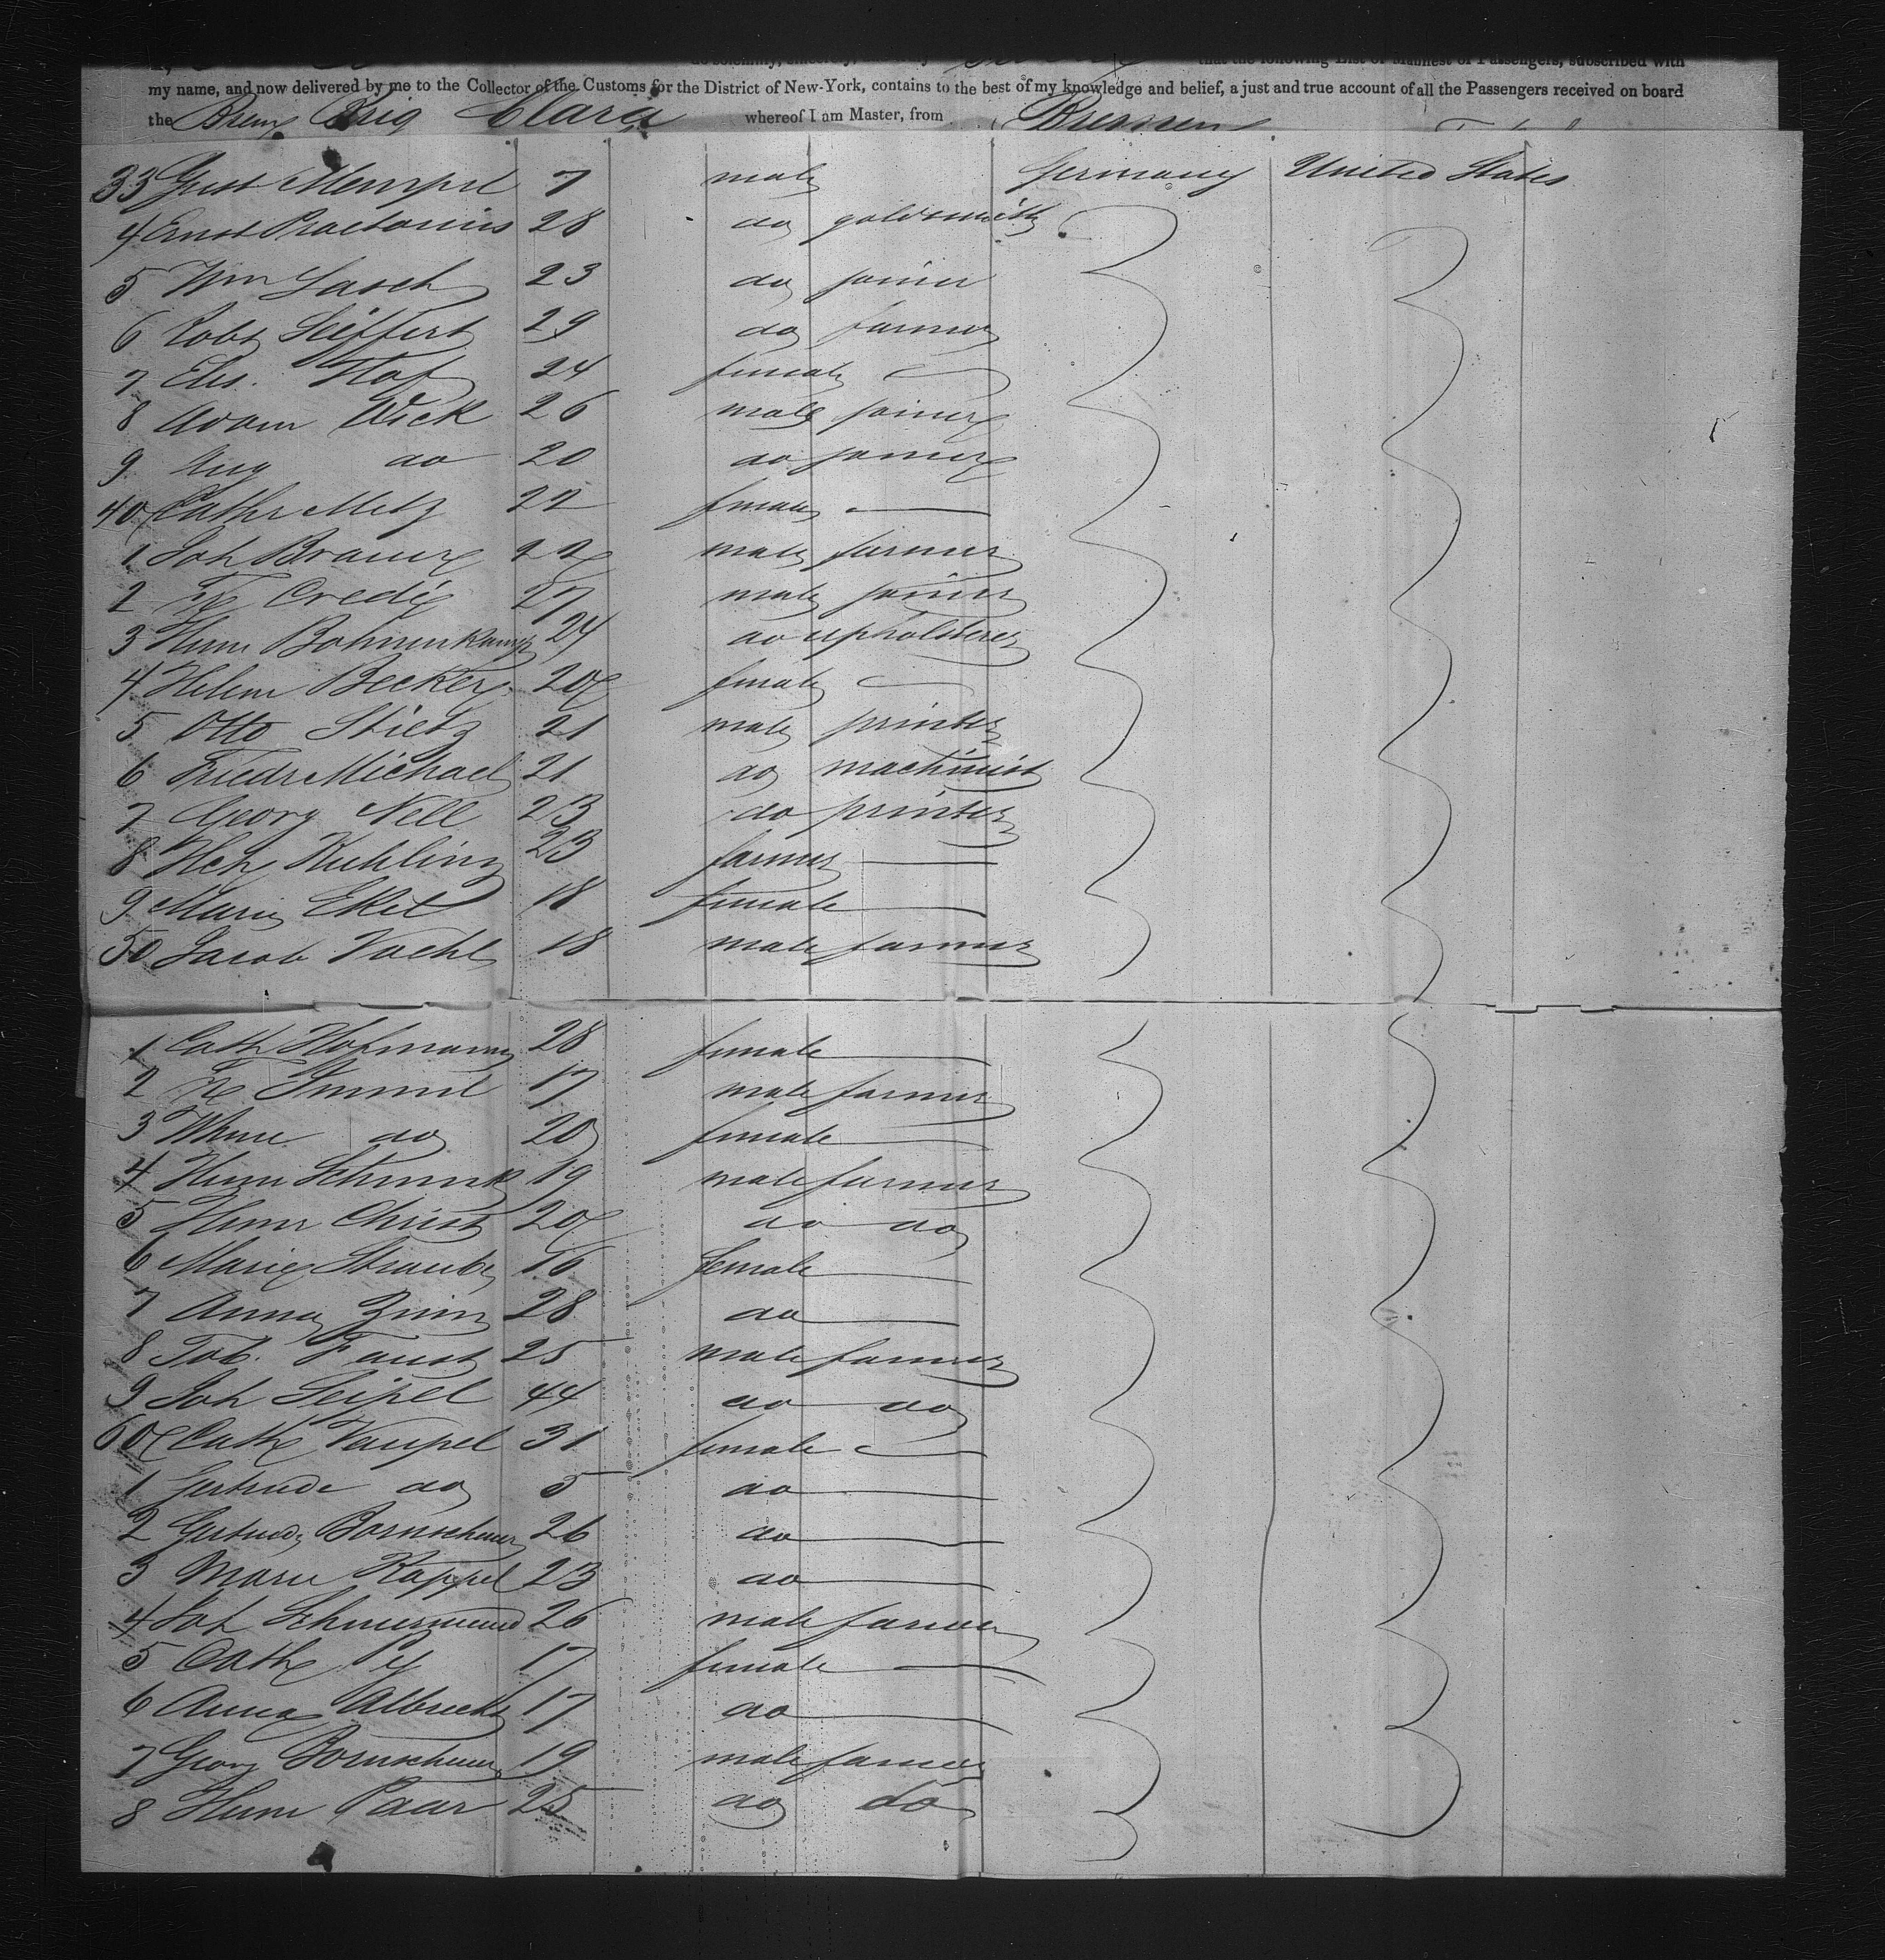 that the following List or Manifest of Passengers, subscribed with
my name, and now delivered by me to the Collector of the Customs for the District of New-York, contains to the best of my knowledge and belief, a just and true account of all the Passengers received on board
the Brem Brig Clara whereof I am Master, from Bremen
33 Gust Mempel 7 male Germany United States
4 Ernst Praetorius 28 do goldsmith
5 Wm Lasch 23 do joiner
6 Robt Seiffert 29 do farmer
7 Elis. Hof 24 female
8 Adam Wick 26 male joiner
9 Aug do 20 do joiner
40 Cathr Metz 22 female
1 Joh Brauer 22 male farmer
2 Fr Credé 27 male joiner
3 Herm Bohnenkamp 24 do upholsterer
4 Helene Becker 20 female
5 Otto Stietz 21 male printer
6 Friedr Michael 21 do machinist
7 Georg Nell 23 do printer
8 Hch Kuhling 23 farmer
9 Marie Ekel 18 female
50 Jacob Vaehl 18 male farmer
1 Cath Hofmann 28 female
2 Fr Immel 17 male farmer
3 Whme do 20 female
4 Herm Schmuck 19 male farmer
5 Herm Christ 20 do do
6 Marie Straube 16 female
7 Anna Zinn 28 do
8 Tob. Faust 25 male farmer
9 Joh Seipel 44 do do
60 Cath Vaupel 31 female
1 Gertrude do 5 do
2 Gertrude Bornscheuer 26 do
3 Marie Kappel 23 do
4 Joh 26 male farmer
5 Cath Py 17 female
6 Anna Albrecht 17 do
7 Georg Bornscheuer 19 male farmer
8 Herm Paar 25 do do